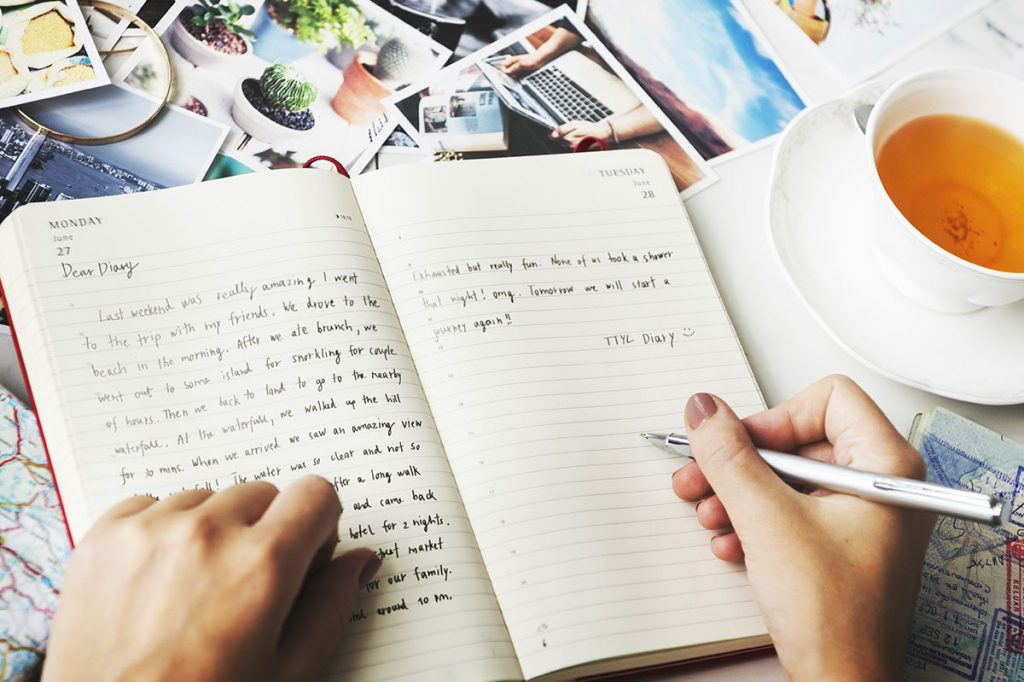 MONDAY
June
27
Dear Diary
Last weekend was really amazing. I went
to the trip with my friends. We drove to the
beach in the morning. After we ate brunch, we
went out to some island for snorkling for couple
of hours. Then we back to land to go to the nearby
waterfall. At the waterfall, we walked up the hill
for 30 mins. When we arrived we saw an amazing view
of waterfall! The water was so clear and not so
after a long walk
and came back
hotel for 2 nights.
street market
for our family.
around 10 PM.
TUESDAY
June
28
Exhausted but really fun. None of us took a shower
that night! omg. Tomorrow we will start a
journey again!!
TTYL Diary